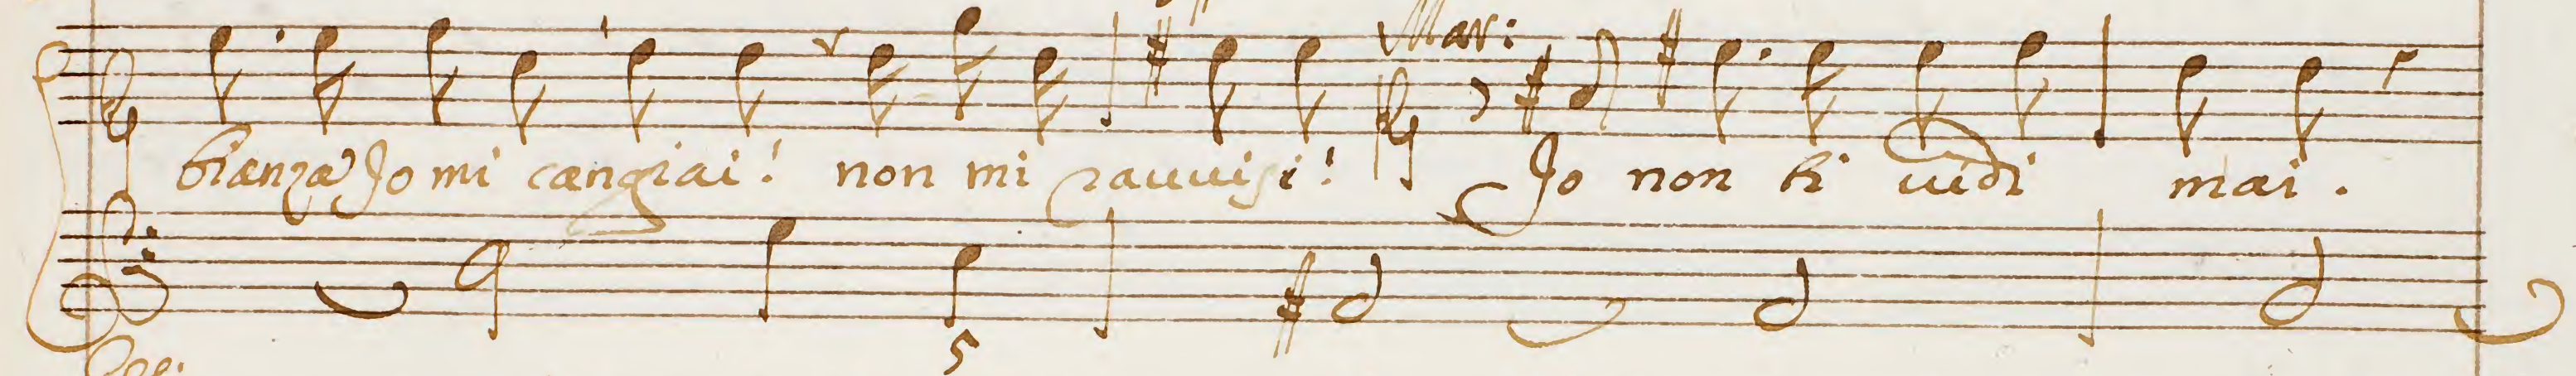 Mar:
bianza Io mi cangiai! non mi rauuisi! Io non ti uidi mai.
5